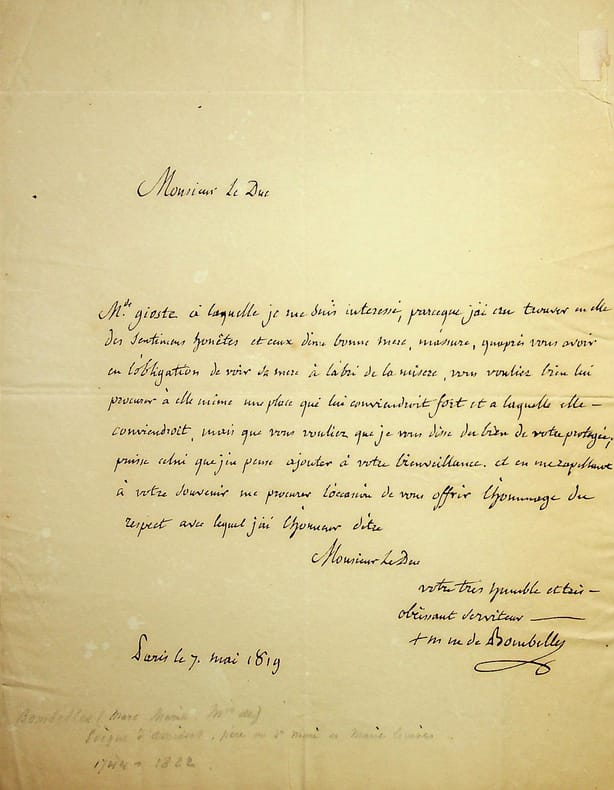 Monsieur Le Duc
M.de gioste a laquelle je me suis interessé, parceque j'ai cru trouver en elle
des sentimens honêtes et ceux d'une bonne mere, m'assure, qu'aprè vous avoir
eu l'obligation de voir sa mere à l'abri de la misere, vous vouliez bien lui
procurer à elle même une place qui lui conviendroit fort et a laquelle elle —
conviendroit, mais que vous vouliez que je vous dise du bien de votre protegée,
puisse celui que j'en pense ajouter à votre bienveillance. et en me rapellant
à votre souvenir me procurer l'occasion de vous offrir l'hommage du
respect avec lequel j'ai l'honneur d'être
Monsieur Le Duc
votre très humble et très —
obéissant serviteur —
+ m m de Bombelles
Paris le 7. mai 1819
Bombelles (Marc Marie, Mis de)
Evêque d'Amiens, père du 3e mari de Marie Louise
1822.